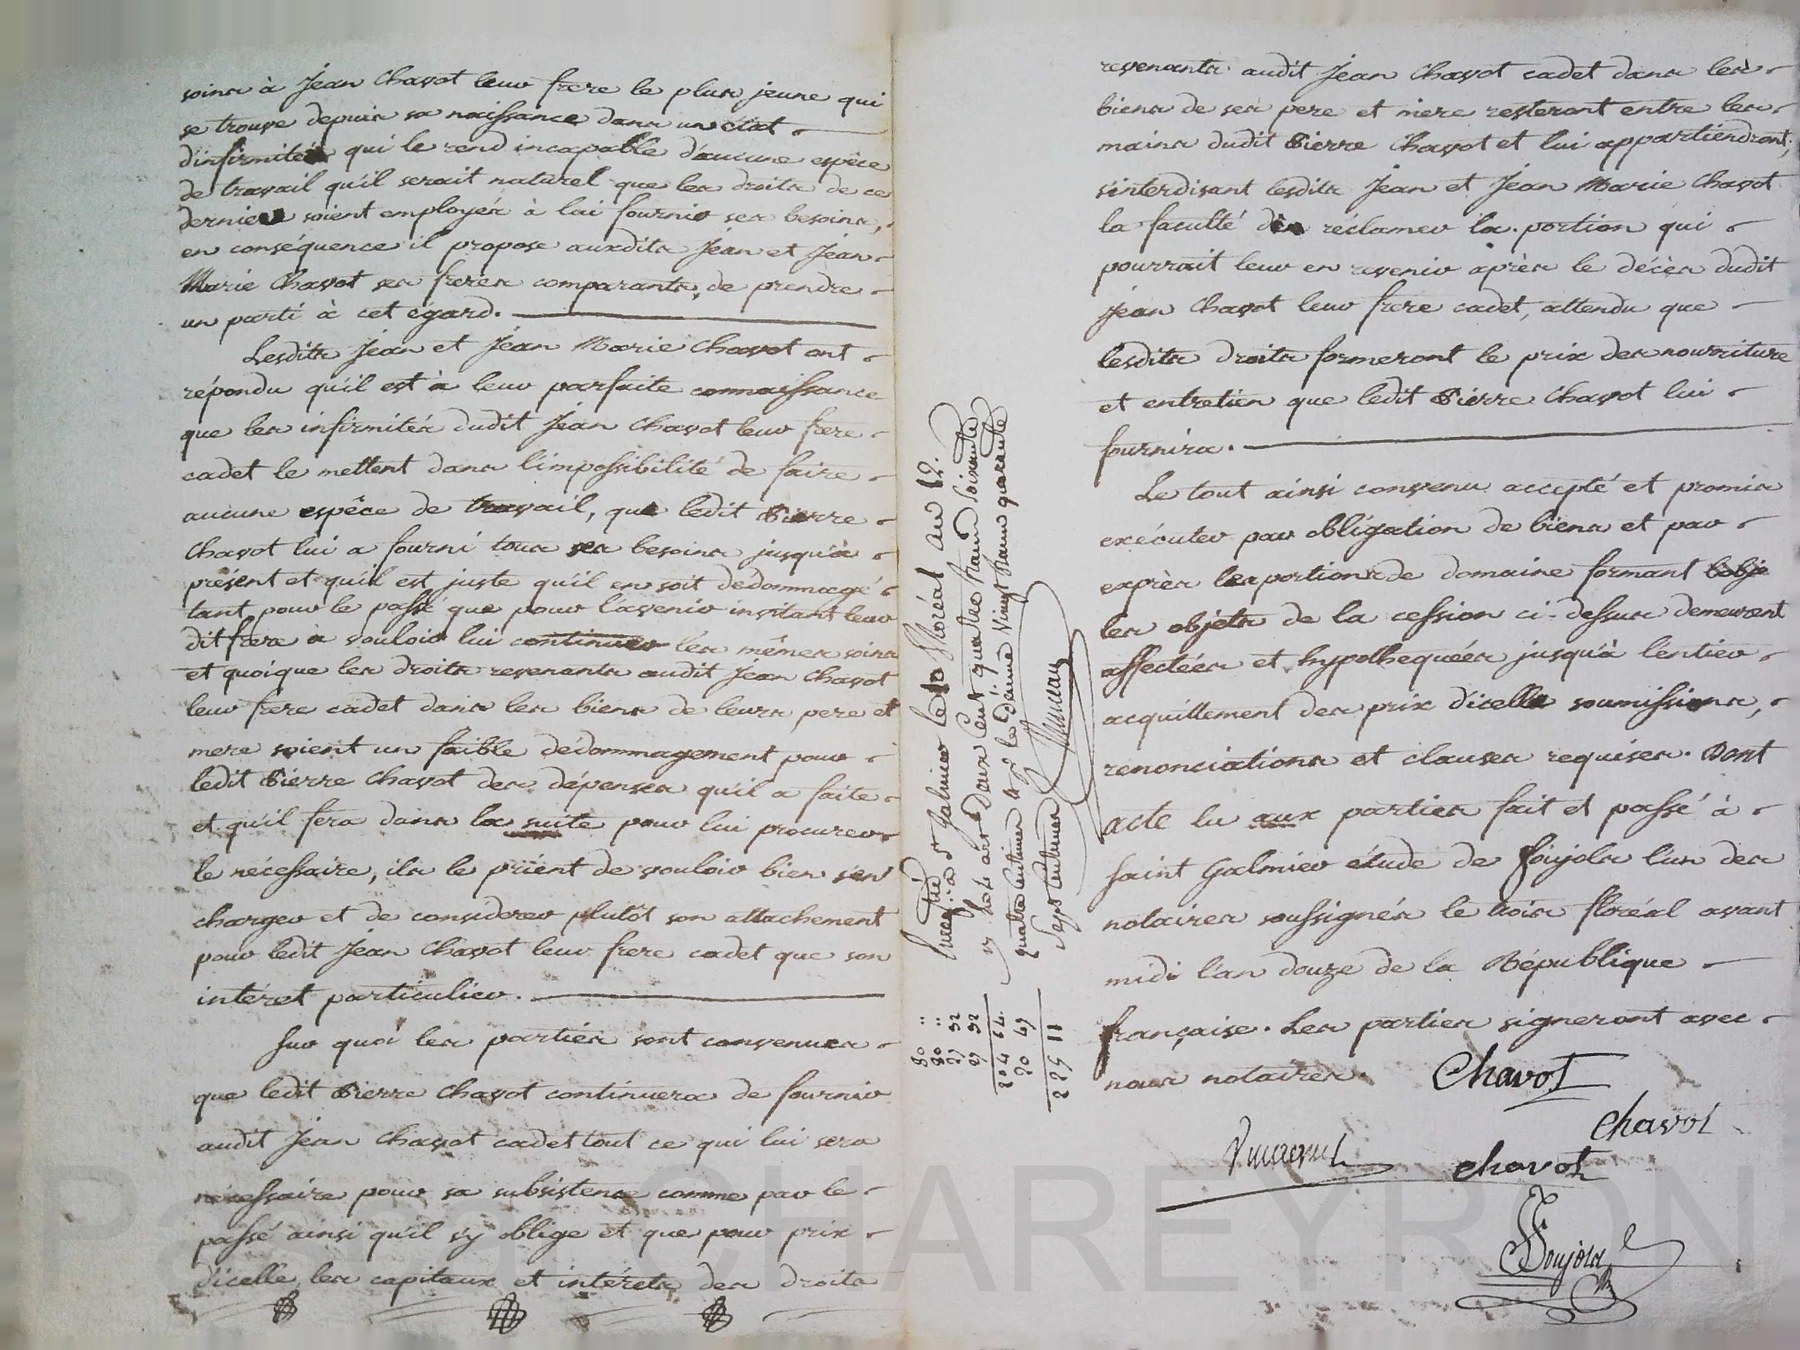 soins à Jean Chavot leur frere le plus jeune qui
se trouve depuis sa naissance dans un état
d'infirmités qui le rend incapable d'aucune espêce
de travail qu'il serait naturel que les droits de ce
dernier soient employés à lui fournir ses besoins,
en conséquence il propose auxdits Jean et Jean
Marie Chavot ses freres comparants, de prendre
un parti à cet égard.
Lesdits Jean et Jean Marie Chavot ont
répondu qu'il est à leur parfaite connaissance
que les infirmités dudit Jean Chavot leur frere
cadet le mettent dans l'impossibilité de faire
aucune espêce de travail, que ledit Pierre
Chavot lui a fourni tous ses besoins jusqu'à
présent et qu'il est juste qu'il en soit dedommagé
tant pour le passé que pour l'avenir invitant leur
dit frere à vouloir lui continuer les mêmes soins
et quoique les droits revenants audit Jean Chavot
leur frere cadet dans les biens de leurs pere et
mere soient un faible dedommagement pour
ledit Pierre Chavot des dépenses qu'il a faite
et qu'il fera dans la suite pour lui procurer
le nécessaire, ils le prient de vouloir bien s'en
charger et de considerer plutôt son attachement
pour ledit Jean Chavot leur frere cadet que son
intéret particulier.
Sur quoi les parties sont convenues
que ledit Pierre Chavot continuera de fournir
audit Jean Chavot cadet tout ce qui lui sera
nécessaire pour sa subsistence comme par le
passé ainsi qu'il s'y oblige et que pour prix
d'icelle les capitaux et intérets des droits
à St Galmier le Floréal an 12.
Deux Cent quatre francs soixante
quatre centimes le Vingt francs quarante
Sept Centimes
80 "
80 "
204 64
20 47
225 11
revenants audit Jean Chavot cadet dans les
biens de ses pere et mere resteront entre les
mains dudit Pierre Chavot et lui appartiendront,
s'interdisant lesdits Jean et Jean Marie Chavot
la faculté de réclamer la portion qui
pourrait leur en revenir après le décès dudit
Jean Chavot leur frere cadet, attendu que
lesdits droits formeront le prix des nourriture
et entretien que ledit Pierre Chavot lui
fournira.
Le tout ainsi convenu accepté et promis
exécuter par obligation de biens et par
exprès les portions de domaine formant l'obje
les objets de la cession ci-dessus demeurent
affectées et hypothequées jusqu'à l'entier
acquittement des prix d'icelle soumissions,
renonciations et clauses requises. Dont
acte lu aux parties fait et passé à
Saint Galmier étude de Soujols l'un des
notaires soussignés le trois floréal avant
midi l'an douze de la République
française. Les parties signeront avec
nous notaires.
Chavot
Chavot
Chavot
Soujols
Pascal CHAREYRON